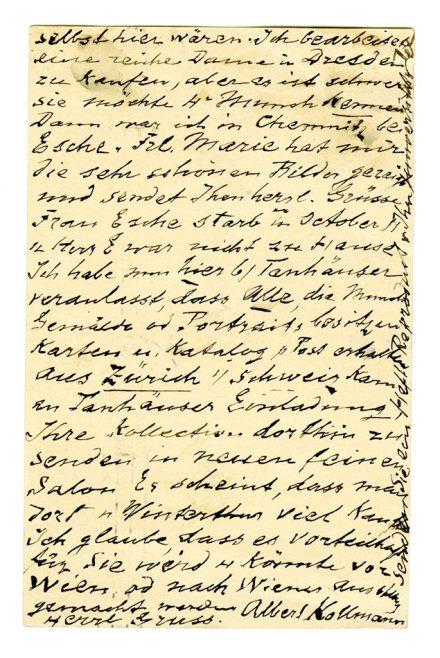 selbst hier wären. Ich bearbeite
eine reiche Dame in Dresden
zu kaufen, aber es ist schwer
sie möchte Hr Munch kennen
Dann war ich in Chemnitz bei
Esche. Frl. Marie hat mir
die sehr schönen Bilder gezeigt
und sendet Ihnen herzl. Grüsse
Frau Esche starb in October
u Herr E war nicht zu Hause
Ich habe nun hier b/ Tanhäuser
veranlasst, dass Alle, die Munch
Gemälde od Portraits besitzen
Karten u. Katalog p Post erhalten
aus Zürich i/ Schweiz kam
an Tanhäuser Einladung
Ihre Kollection dorthin zu
senden in neuen feinen
Salon Es scheint, dass man
dort u Winterthur viel kauft
Ich glaube, dass es vorteilhaft
für Sie wird u könnte vor
Wien od nach Wiener Ausstellung
gemacht werden Albert Kollmann
Herzl Gruss.
Senden Sie ein